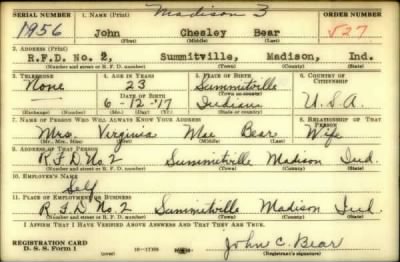 Madison 3
SERIAL NUMBER 1. NAME (Print) ORDER NUMBER
1956 John Chesley Bear 527
(First) (Middle) (Last)
2. ADDRESS (Print)
R.F.D. No. 2, Summitville, Madison, Ind.
(Number and street or R. F. D. number) (Town) (County) (State)
3. TELEPHONE 4. AGE IN YEARS 5. PLACE OF BIRTH 6. COUNTRY OF CITIZENSHIP
None 23 Summitville
(Town or county)
DATE OF BIRTH
6-12-'17 Indiana U.S.A.
(Exchange) (Number) (Mo.) (Day) (Yr.) (State or country)
7. NAME OF PERSON WHO WILL ALWAYS KNOW YOUR ADDRESS 8. RELATIONSHIP OF THAT PERSON
Mrs. Virginia Mae Bear Wife
(Mr., Mrs., Miss) (First) (Middle) (Last)
9. ADDRESS OF THAT PERSON
R F D No 2 Summitville Madison Ind.
(Number and street or R. F. D. number) (Town) (County) (State)
10. EMPLOYER'S NAME
Self
11. PLACE OF EMPLOYMENT OR BUSINESS
R F D No 2 Summitville Madison Ind.
(Number and street or R. F. D. number) (Town) (County) (State)
I AFFIRM THAT I HAVE VERIFIED ABOVE ANSWERS AND THAT THEY ARE TRUE.
REGISTRATION CARD
D. S. S. Form 1 John C. Bear
(Registrant's signature)